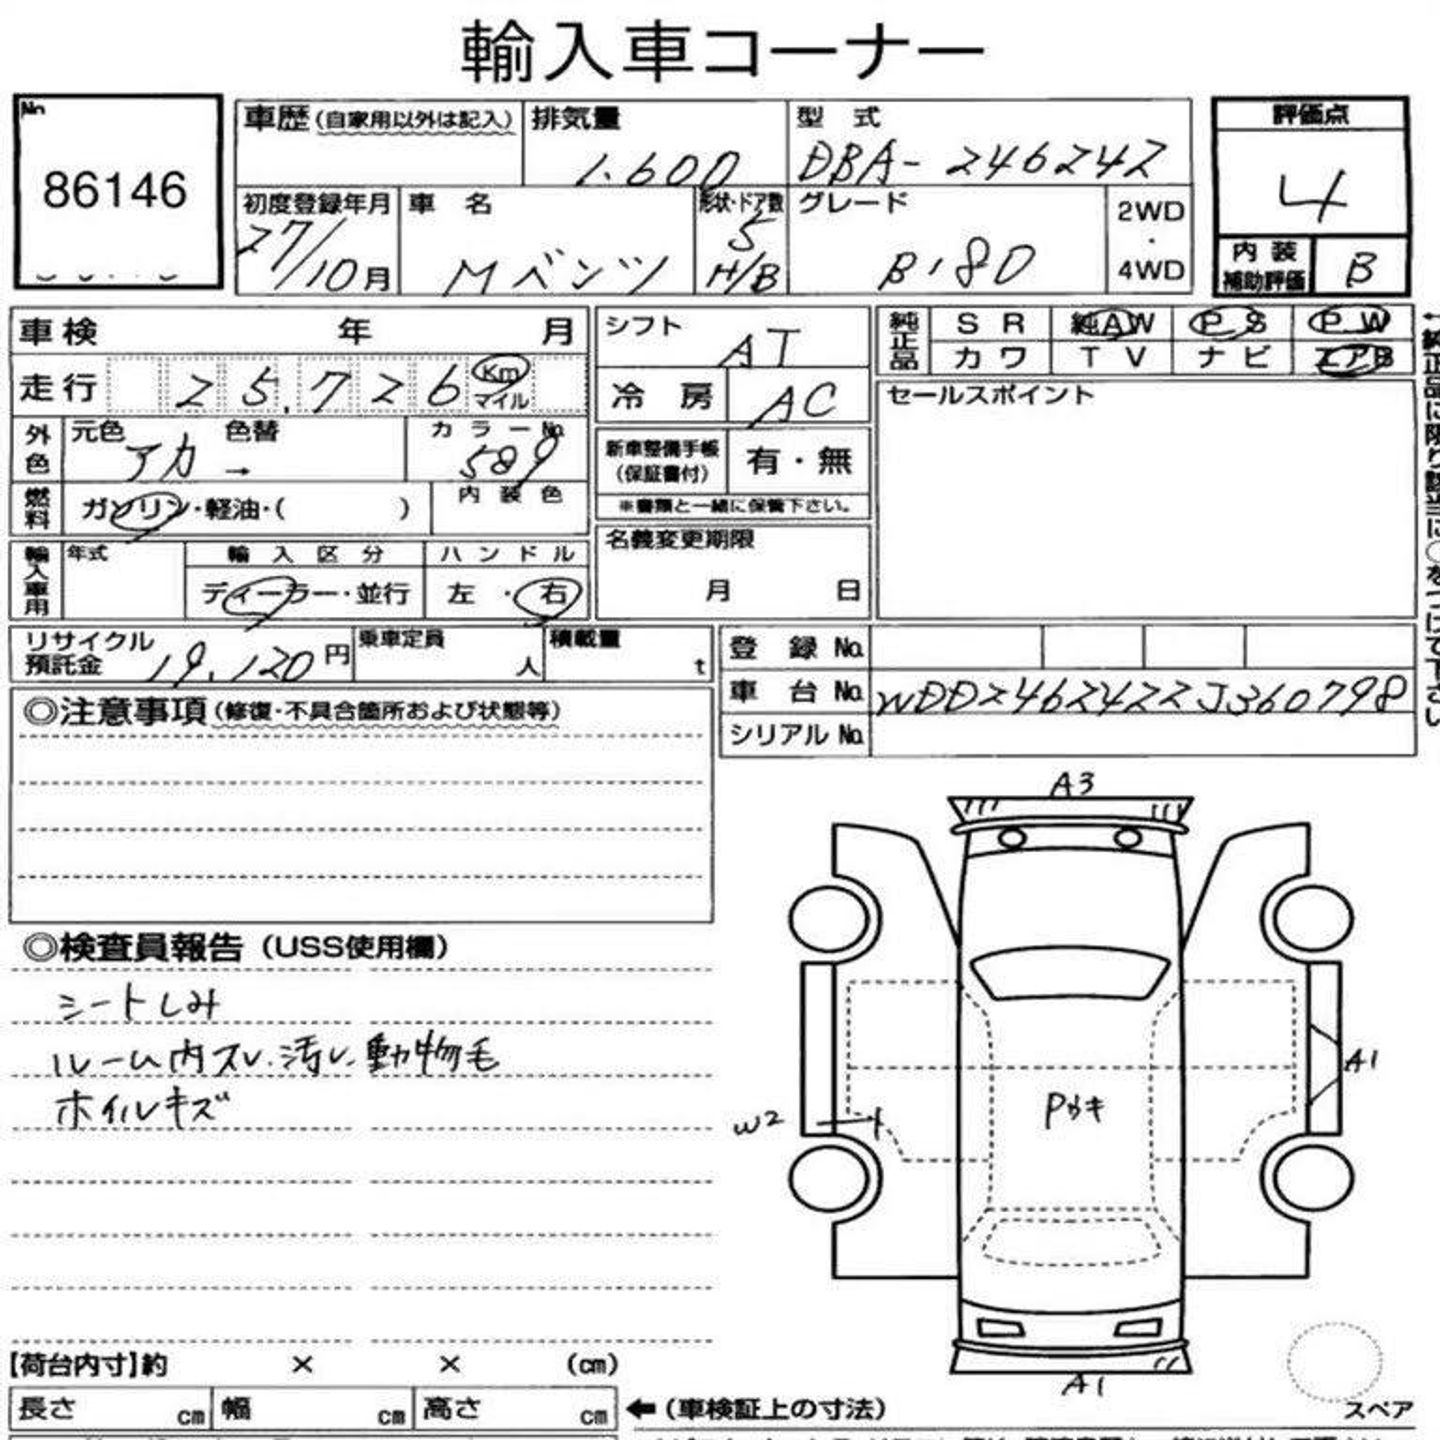 輸入車コーナー
No.
86146
車歴(自家用以外は記入)
排気量
1.600
型 式
DBA-246242
評価点
4
初度登録年月
27/10月
車 名
Mベンツ
形状・ドア数
5
H/B
グレード
B180
2WD
・
4WD
内 装
補助評価
B
車検 年 月
シフト
AT
純正品
S R
純AW
P S
P W
カワ
T V
ナビ
エアB
走行
25,726
Km
マイル
冷 房
AC
セールスポイント
外色
元色
アカ
色替
→
カラーNo.
589
新車整備手帳
(保証書付)
有・無
燃料
ガソリン・軽油・( )
内 装 色
※書類と一緒に保管下さい。
輸入車用
年式
輸 入 区 分
ディーラー・並行
ハ ン ド ル
左 ・ 右
名義変更期限
月 日
リサイクル
預託金
19,120円
乗車定員
人
積載量
t
登 録 No.
車 台 No.
WDD2462422J360798
シリアル No.
◎注意事項(修復・不具合箇所および状態等)
◎検査員報告(USS使用欄)
シートしみ
ルーム内スレ.汚レ.動物毛
ホイルキズ
A3
A1
W2
Pガキ
A1
スペア
【荷台内寸】約 × × (cm)
長さ cm
幅 cm
高さ cm
←(車検証上の寸法)